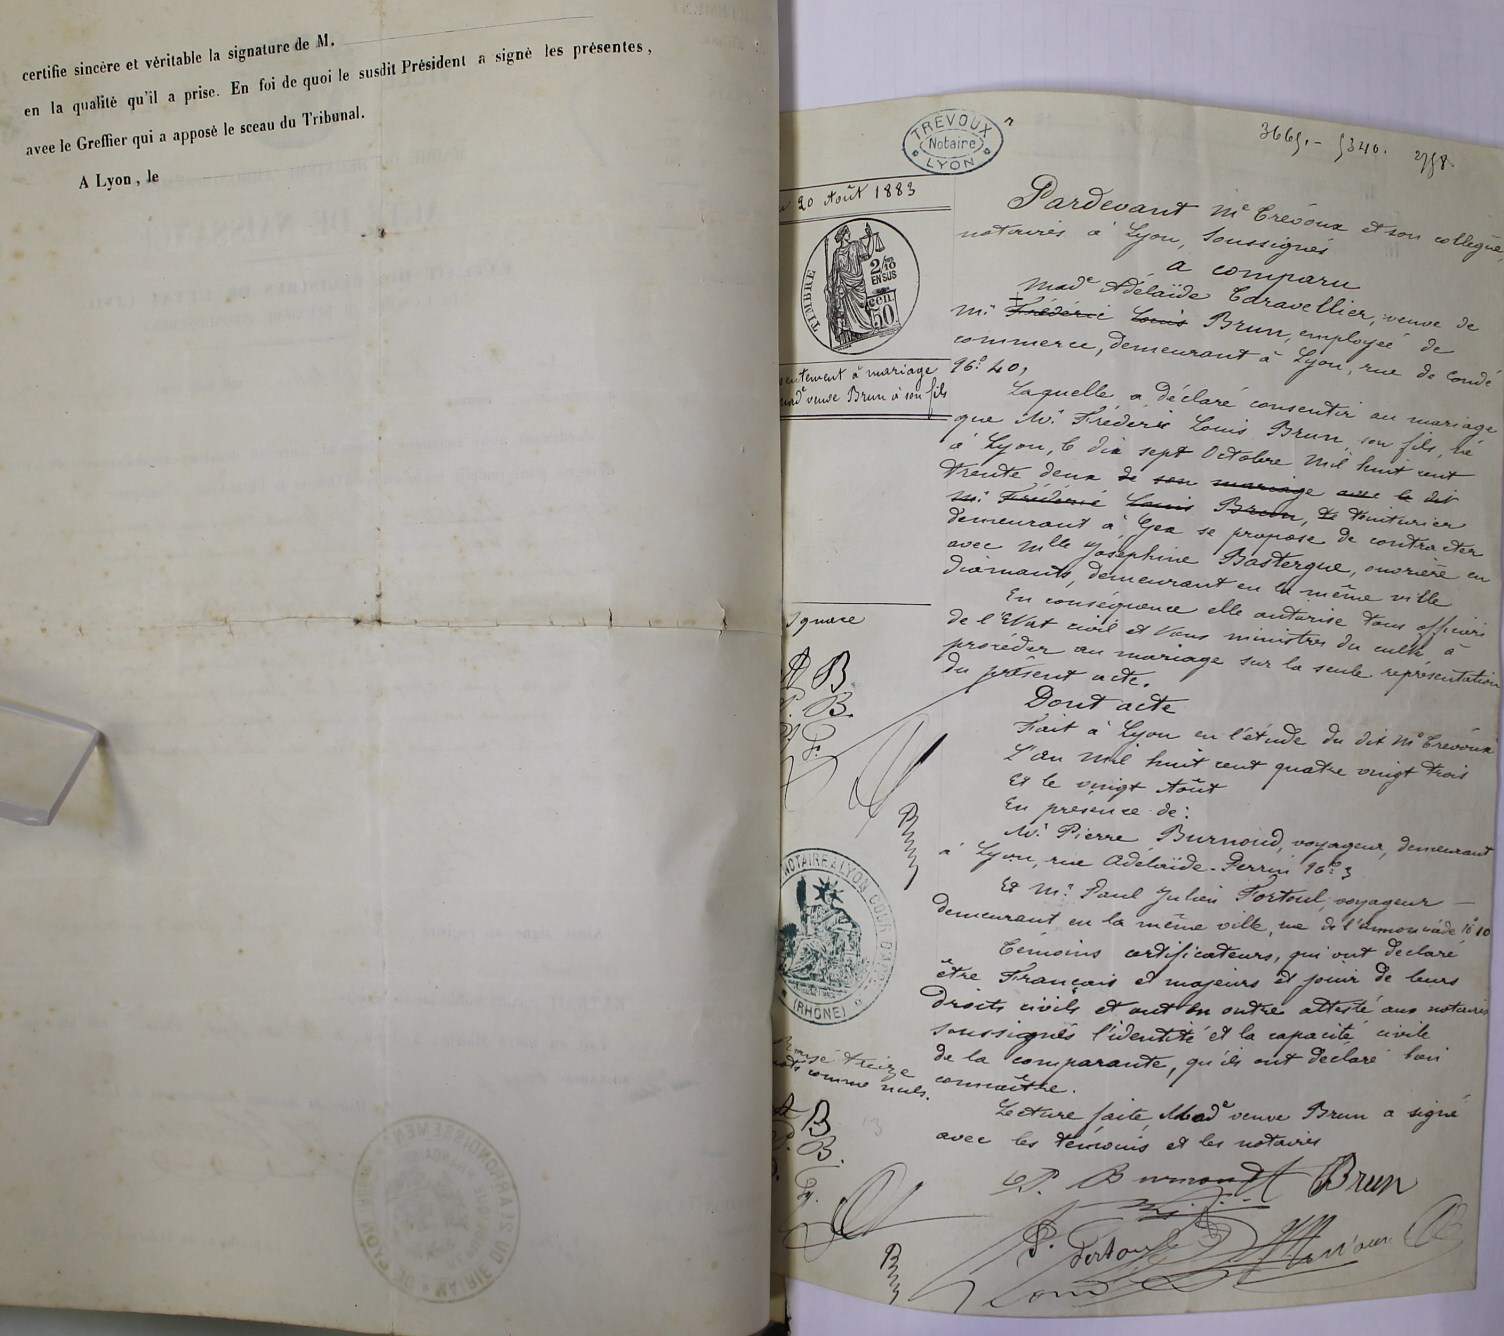 certifie sincère et véritable la signature de M.
en la qualité qu'il a prise. En foi de quoi le susdit Président a signé les présentes,
avec le Greffier qui a apposé le sceau du Tribunal.
A Lyon, le
TREVOUX
Notaire
LYON
3665.- 5340. 2758.
20 Août 1883
TIMBRE
2/10
EN SUS
50 CEN.
sentement à mariage
mad.e veuve Brun à son fils
Pardevant Me Trévoux et son collègue,
notaires à Lyon, Soussignés
a comparu
Made Adélaïde Caravellier, veuve de
Mr Frédéric Louis Brun, employée de
commerce, demeurant à Lyon, rue de Condé
No 40,
Laquelle a déclaré consentir au mariage
que Mr Fréderic Louis Brun, son fils, né
à Lyon, le dix sept Octobre mil huit cent
trente deux de son mariage avec le dit
Mr Frédéric Louis Brun, teinturier
demeurant à Gex se propose de contracter
avec Mlle Joséphine Bastergue, ouvrière en
diamants, demeurant en la même ville
En conséquence elle autorise tous officiers
de l'Etat civil et tous ministres du culte à
procéder au mariage sur la seule représentation
du présent acte.
Dont acte
Fait à Lyon en l'étude du dit Me Trévoux
L'an mil huit cent quatre vingt trois
Et le vingt Août
En présence de:
Mr Pierre Burnoud, voyageur, demeurant
à Lyon, rue Adélaïde-Perrin No 3
Et Mr Paul Julien Fortoul, voyageur
demeurant en la même ville, rue de l'annonciade No 10
Témoins certificateurs, qui ont déclaré
être Français et majeurs et jouir de leurs
droits civils et ont en outre attesté aux notaires
soussignés l'identité et la capacité civile
de la comparante, qu'ils ont déclaré bien
connaître.
Lecture faite, Made veuve Brun a signé
avec les témoins et les notaires
P. Burnoud A Brun
P. Fortoul
A B
P. B.
NOTAIRE A LYON COUR D'APPEL
(RHONE)
treize
mots comme nuls.
A B
P. B.